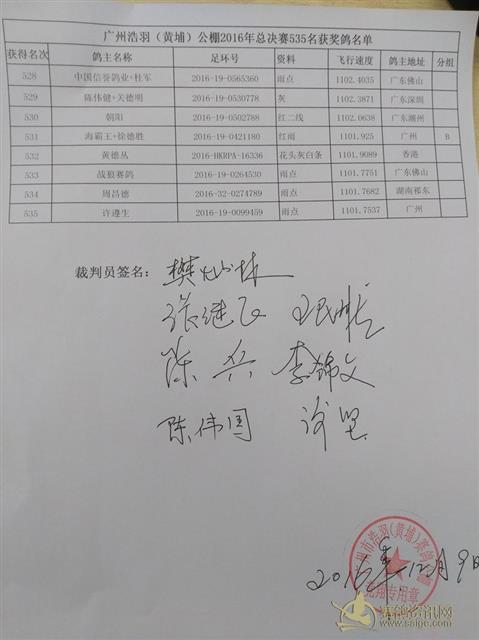 广州浩羽（黄埔）公棚2016年总决赛535名获奖鸽名单
获得名次 鸽主名称 足环号 资料 飞行速度 鸽主地址 分组
528 中国信誉鸽业+杜军 2016-19-0565360 雨点 1102.4035 广东佛山
529 陈伟健+关德明 2016-19-0530778 灰 1102.3871 广东深圳
530 朝阳 2016-19-0502788 红二线 1102.0638 广东潮州
531 海霸王+徐德胜 2016-19-0421180 红雨 1101.925 广州 B
532 黄德丛 2016-HKRPA-16336 花头灰白条 1101.9089 香港
533 战狼赛鸽 2016-19-0264530 雨点 1101.7751 广东佛山
534 周昌德 2016-32-0274789 雨点 1101.7682 湖南祁东
535 许遵生 2016-19-0099459 雨点 1101.7537 广州
裁判员签名：樊灿林
张继飞
陈兵 李锦文
陈伟国 谢坚
广州市浩羽(黄埔)赛鸽公棚
竞翔专用章
2016年12月9日
赛鸽资讯网
www.saige.com